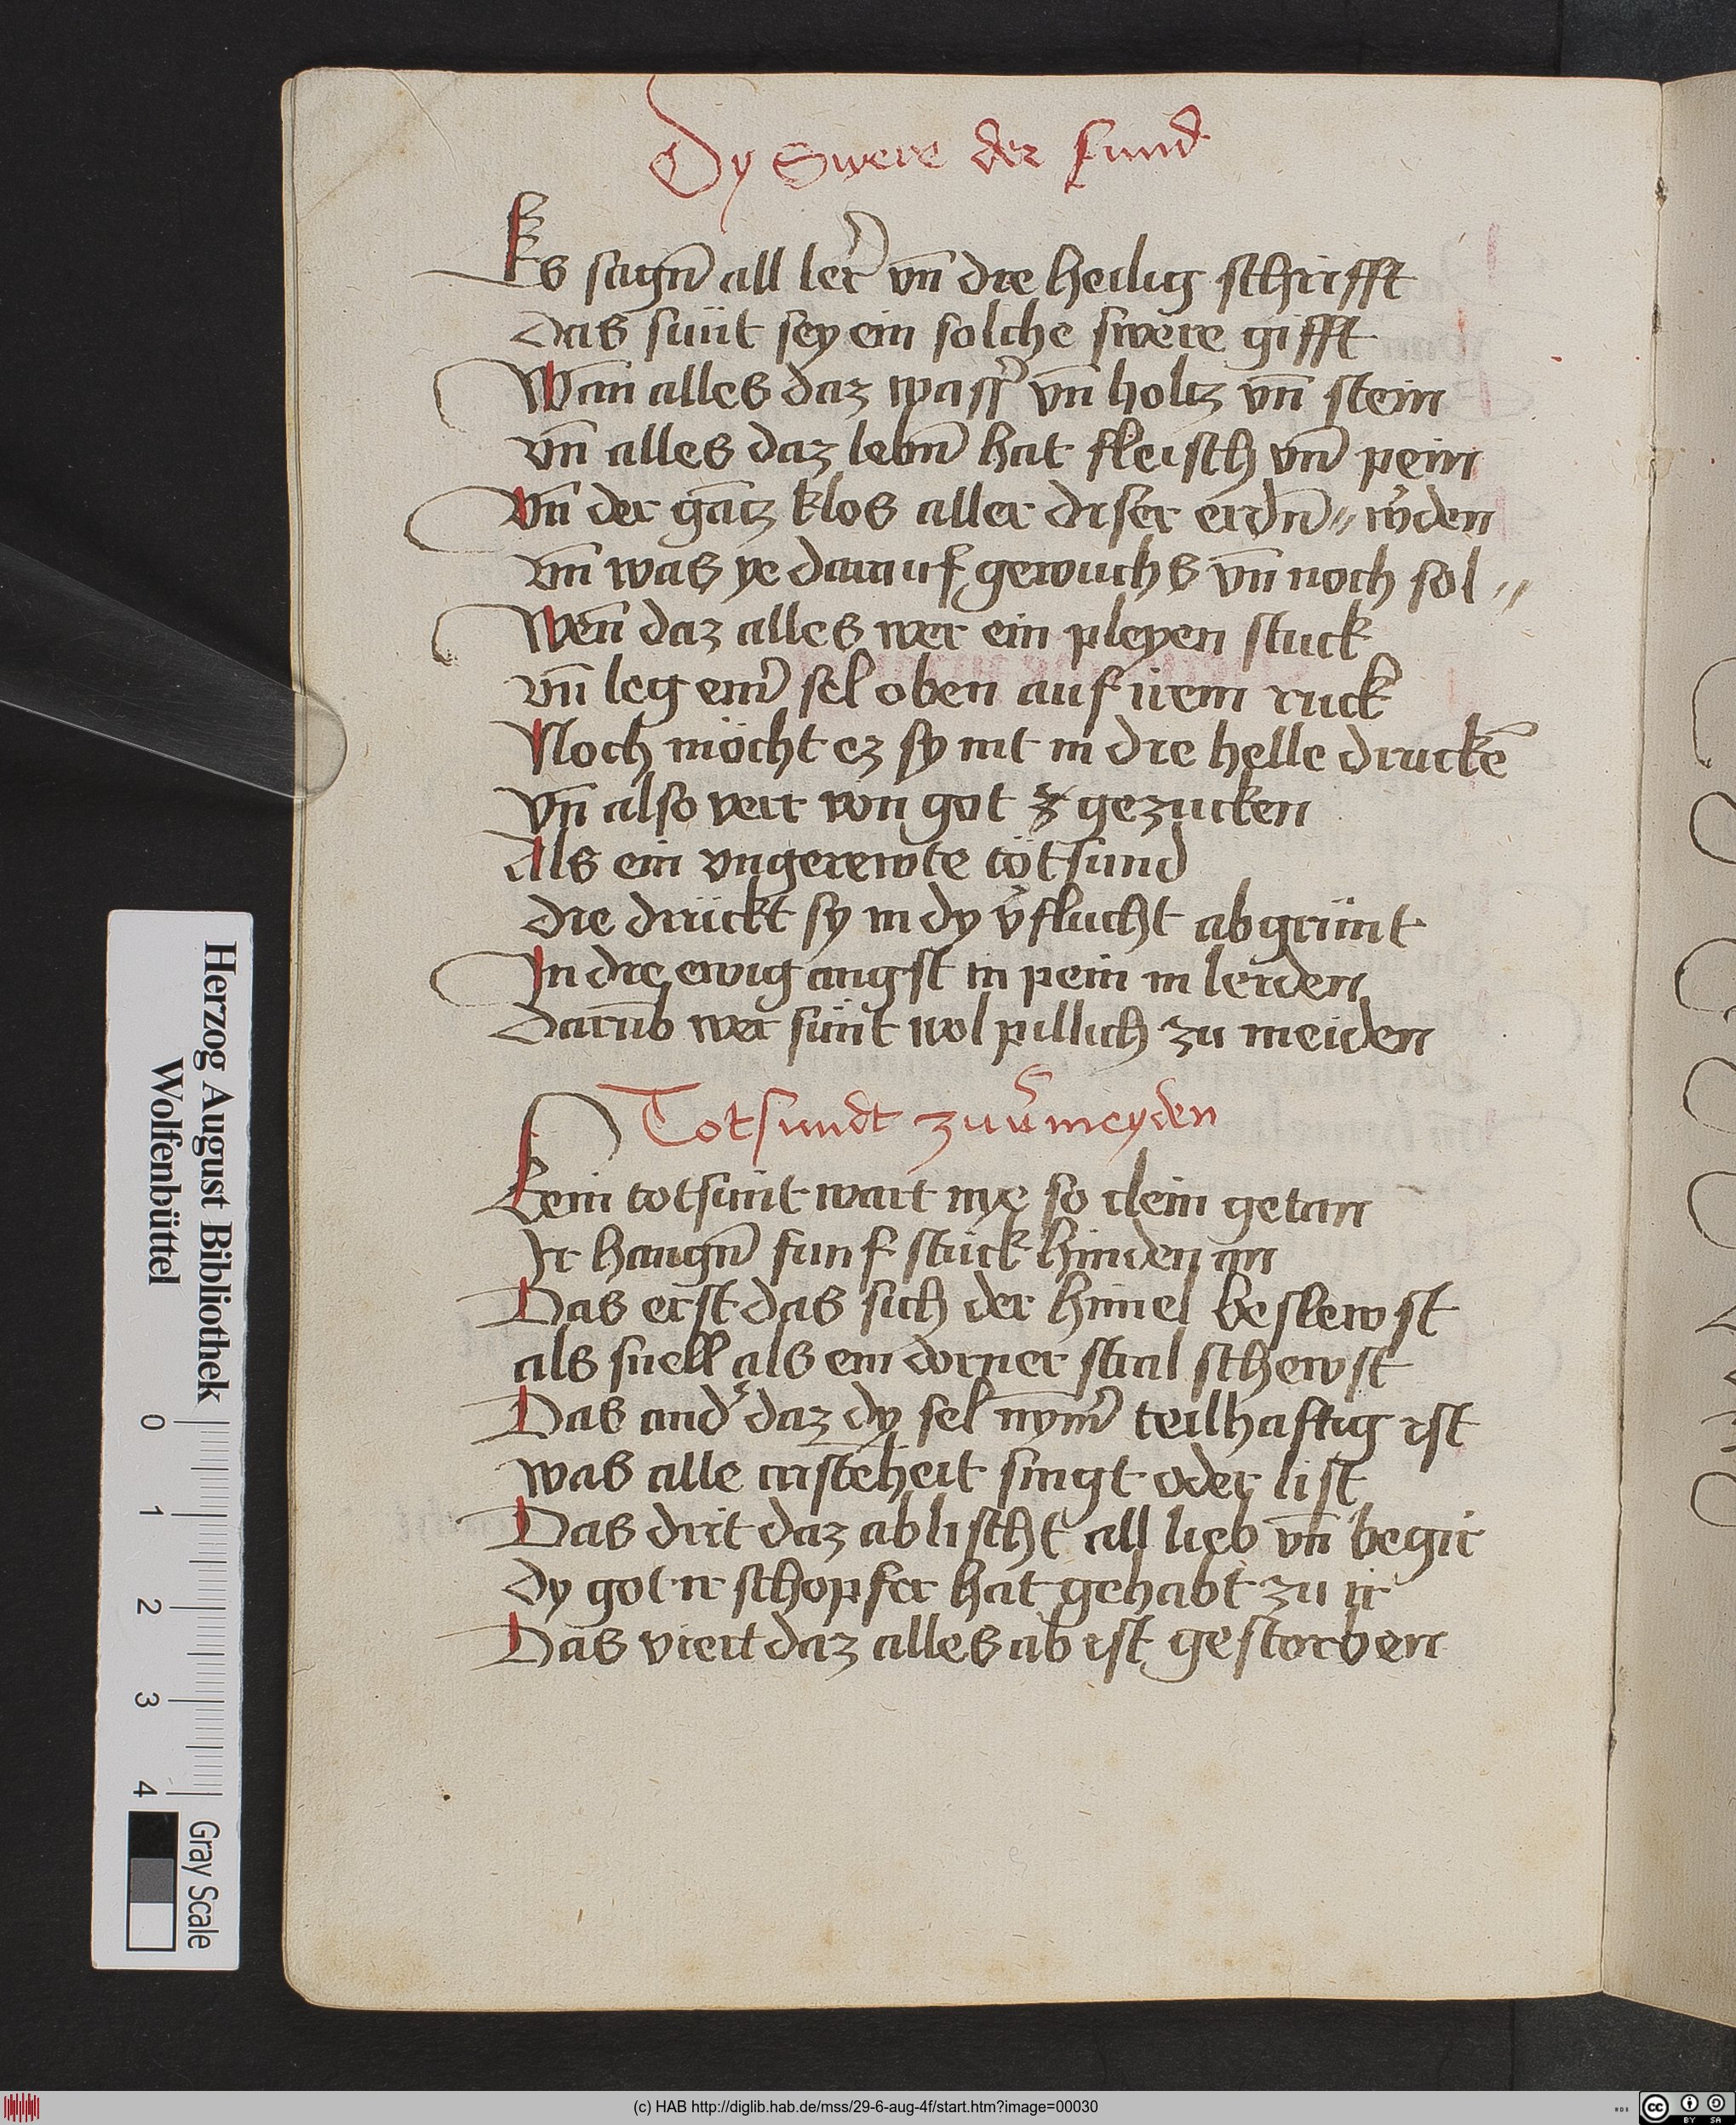 Dy Swere der sund
Es sagn̄ all ler̉ vn̄ die heilig schrifft
das sünt sey ein solche swere gifft
Wan̄ alles daz wass̉ vn̄ holtz vn̄ stein
vn̄ alles daz lebn̄ hat fleisch vn̄ pein
Vn̄ der gācz klos aller diser erdn̄ // w̉den
vn̄ was ye darauf gewuchs vn̄ noch sol //
Wen̄ daz alles wer ein pleyen stuck
vn̄ leg ein̉ sel oben auf irem ruck
Noch möcht ez sy nit in die helle druckē
vn̄ also verr von got gezucken
Als ein vngerewte tötsund
die drückt sy in dy v̉flucht abgrünt
In die ewig angst in pein in leiden
Darūb wer sünt wol pillich zu meiden
Totsundt zuv̉meyden
Kein totsünt wart nye so clein getan
Ir hangn̄ funf stück hinden an
Das erst das sich der himel beslewst
als snell als ein dorner stral schewst
Das and̉ daz dy sel nym̉ teilhaftig ist
was alle cristēheit singt oder list
Das drit daz ablischt all lieb vn̄ begir
dy got ir schopfer hat gehabt zu ir
Das viert daz alles ab ist gestorben
Herzog August Bibliothek
Wolfenbüttel
0 1 2 3 4
Gray Scale
(c) HAB http://diglib.hab.de/mss/29-6-aug-4f/start.htm?image=00030
cc BY SA